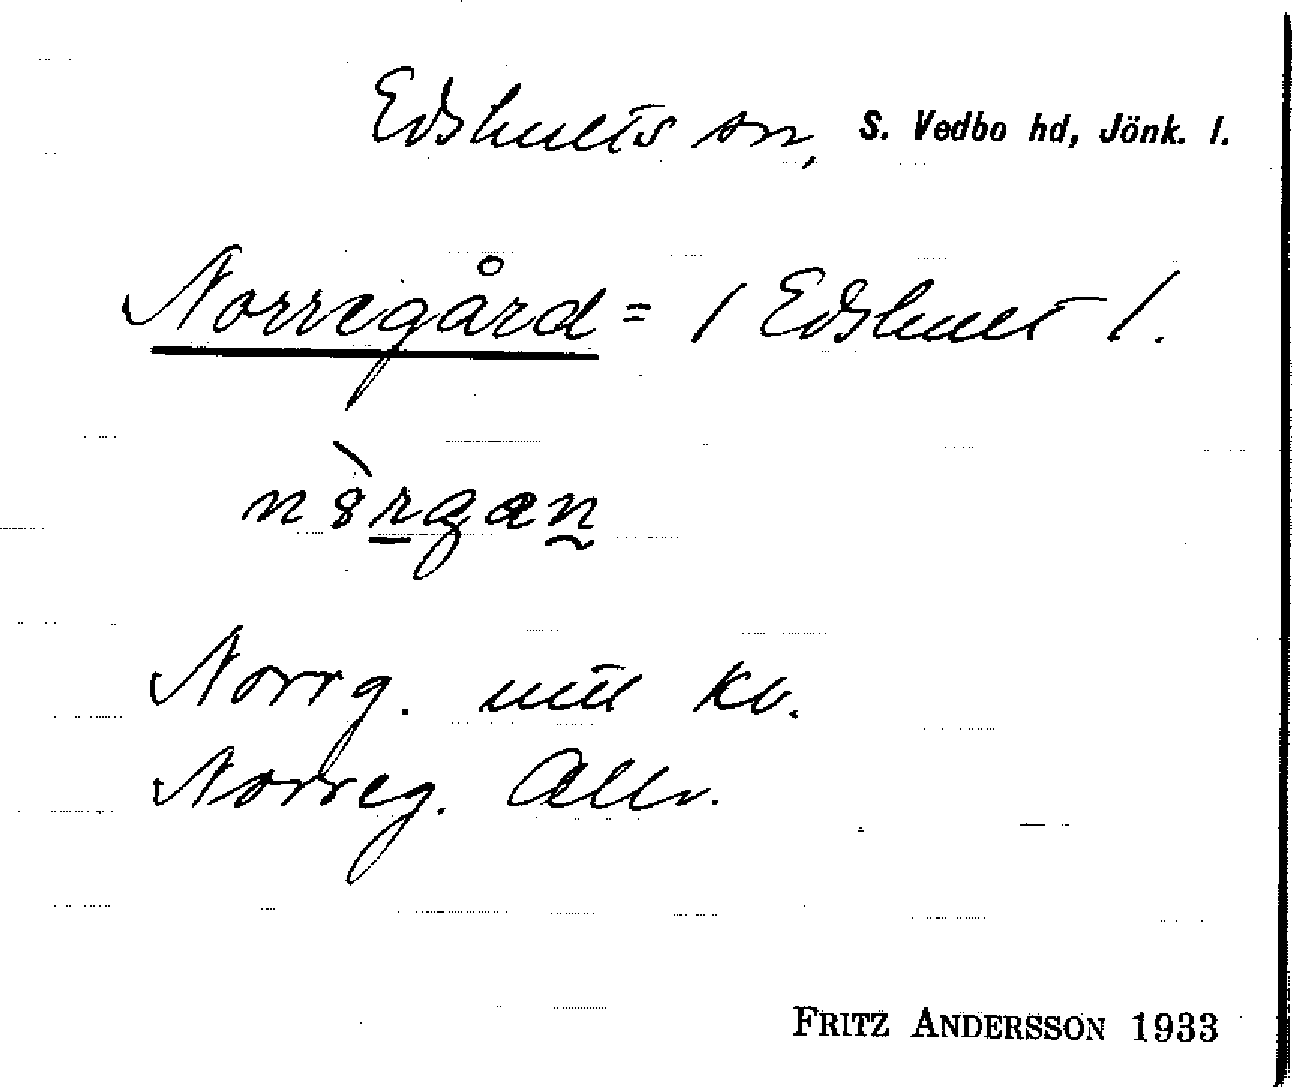 Edshults sn, S. Vedbo hd, Jönk. l.
Norregård = / Edshult /.
nòrgan
Norrg. utt kv.
Norreg. Allv.
FRITZ ANDERSSON 1933